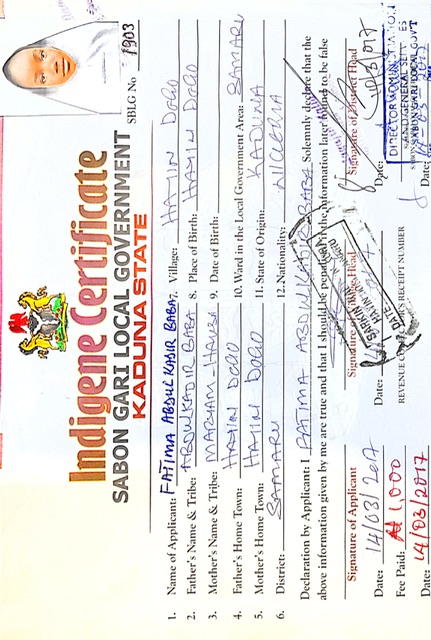 Indigene Certificate
SABON GARI LOCAL GOVERNMENT
KADUNA STATE
SBLG No 1903
1. Name of Applicant: FATIMA ABDULKADIR BABA 7. Village: HAYIN DOGO
2. Father's Name & Tribe: ABDULKADIR BABA 8. Place of Birth: HAYIN DOGO
3. Mother's Name & Tribe: MARYAM - HAUSA 9. Date of Birth:
4. Father's Home Town: HAYIN DOGO 10. Ward in the Local Government Area: SAMARU
5. Mother's Home Town: HAYIN DOGO 11. State of Origin: KADUNA
6. District: SAMARU 12. Nationality: NIGERIA
Declaration by Applicant: I FATIMA ABDULKADIR BABA Solemnly declare that the
above information given by me are true and that I should be the information later found to be false
Signature of Applicant Signature of Village Head Signature of District Head
Date: 14/03/2017 Date: Date:
Fee Paid: ₦1,000 REVENUE RECEIPT NUMBER
Date: 14/03/2017 Date:
SARKIN
HAYIN
DATE
DIRECTOR ADMINISTRATION
AND GENERAL
SABON GARI LOCAL GOVT